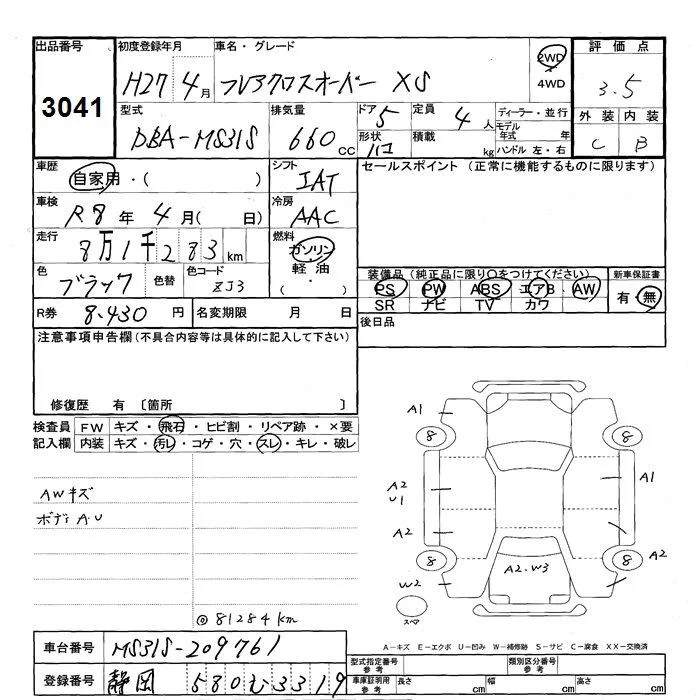 出品番号 初度登録年月 車名・グレード 評価点
3041 H27 4月 フレアクロスオーバー XS 2WD 4WD 3.5
型式 排気量 ドア 5 定員 4人 ディーラー・並行 外装 内装
DBA-MS31S 660cc 形状 積載 kg モデル年式 年 ハンドル 左・右 C B
車歴 自家用・( ) シフト IAT セールスポイント (正常に機能するものに限ります)
車検 R8年 4月( 日) 冷房 AAC
走行 8万1千283km 燃料 ガソリン 軽油 ( ・ )
色 ブラック 色替 色コード ZJ3 装備品 (純正品に限り○をつけてください) 新車保証書
PS PW ABS エアB AW 有・無
SR ナビ TV カワ
R券 8,430円 名変期限 月 日 後日品
注意事項申告欄 (不具合内容等は具体的に記入して下さい)
修復歴 有 〔箇所 〕
検査員 FW キズ・飛石・ヒビ割・リペア跡・×要
記入欄 内装 キズ・汚レ・コゲ・穴・スレ・キレ・破レ
A1
8 8
AWキズ
A2 U1 A1
ボディA.U
A2
8 8 A2
A2.W3
W2
スペア
◎81284km
A-キズ E-エクボ U-凹み W-補修跡 S-サビ C-腐食 XX-交換済
車台番号 MS31S-209761
型式指定番号 参考 類別区分番号 参考
登録番号 静岡 580む3319
車庫証明用 参考 長さ cm 幅 cm 高さ cm